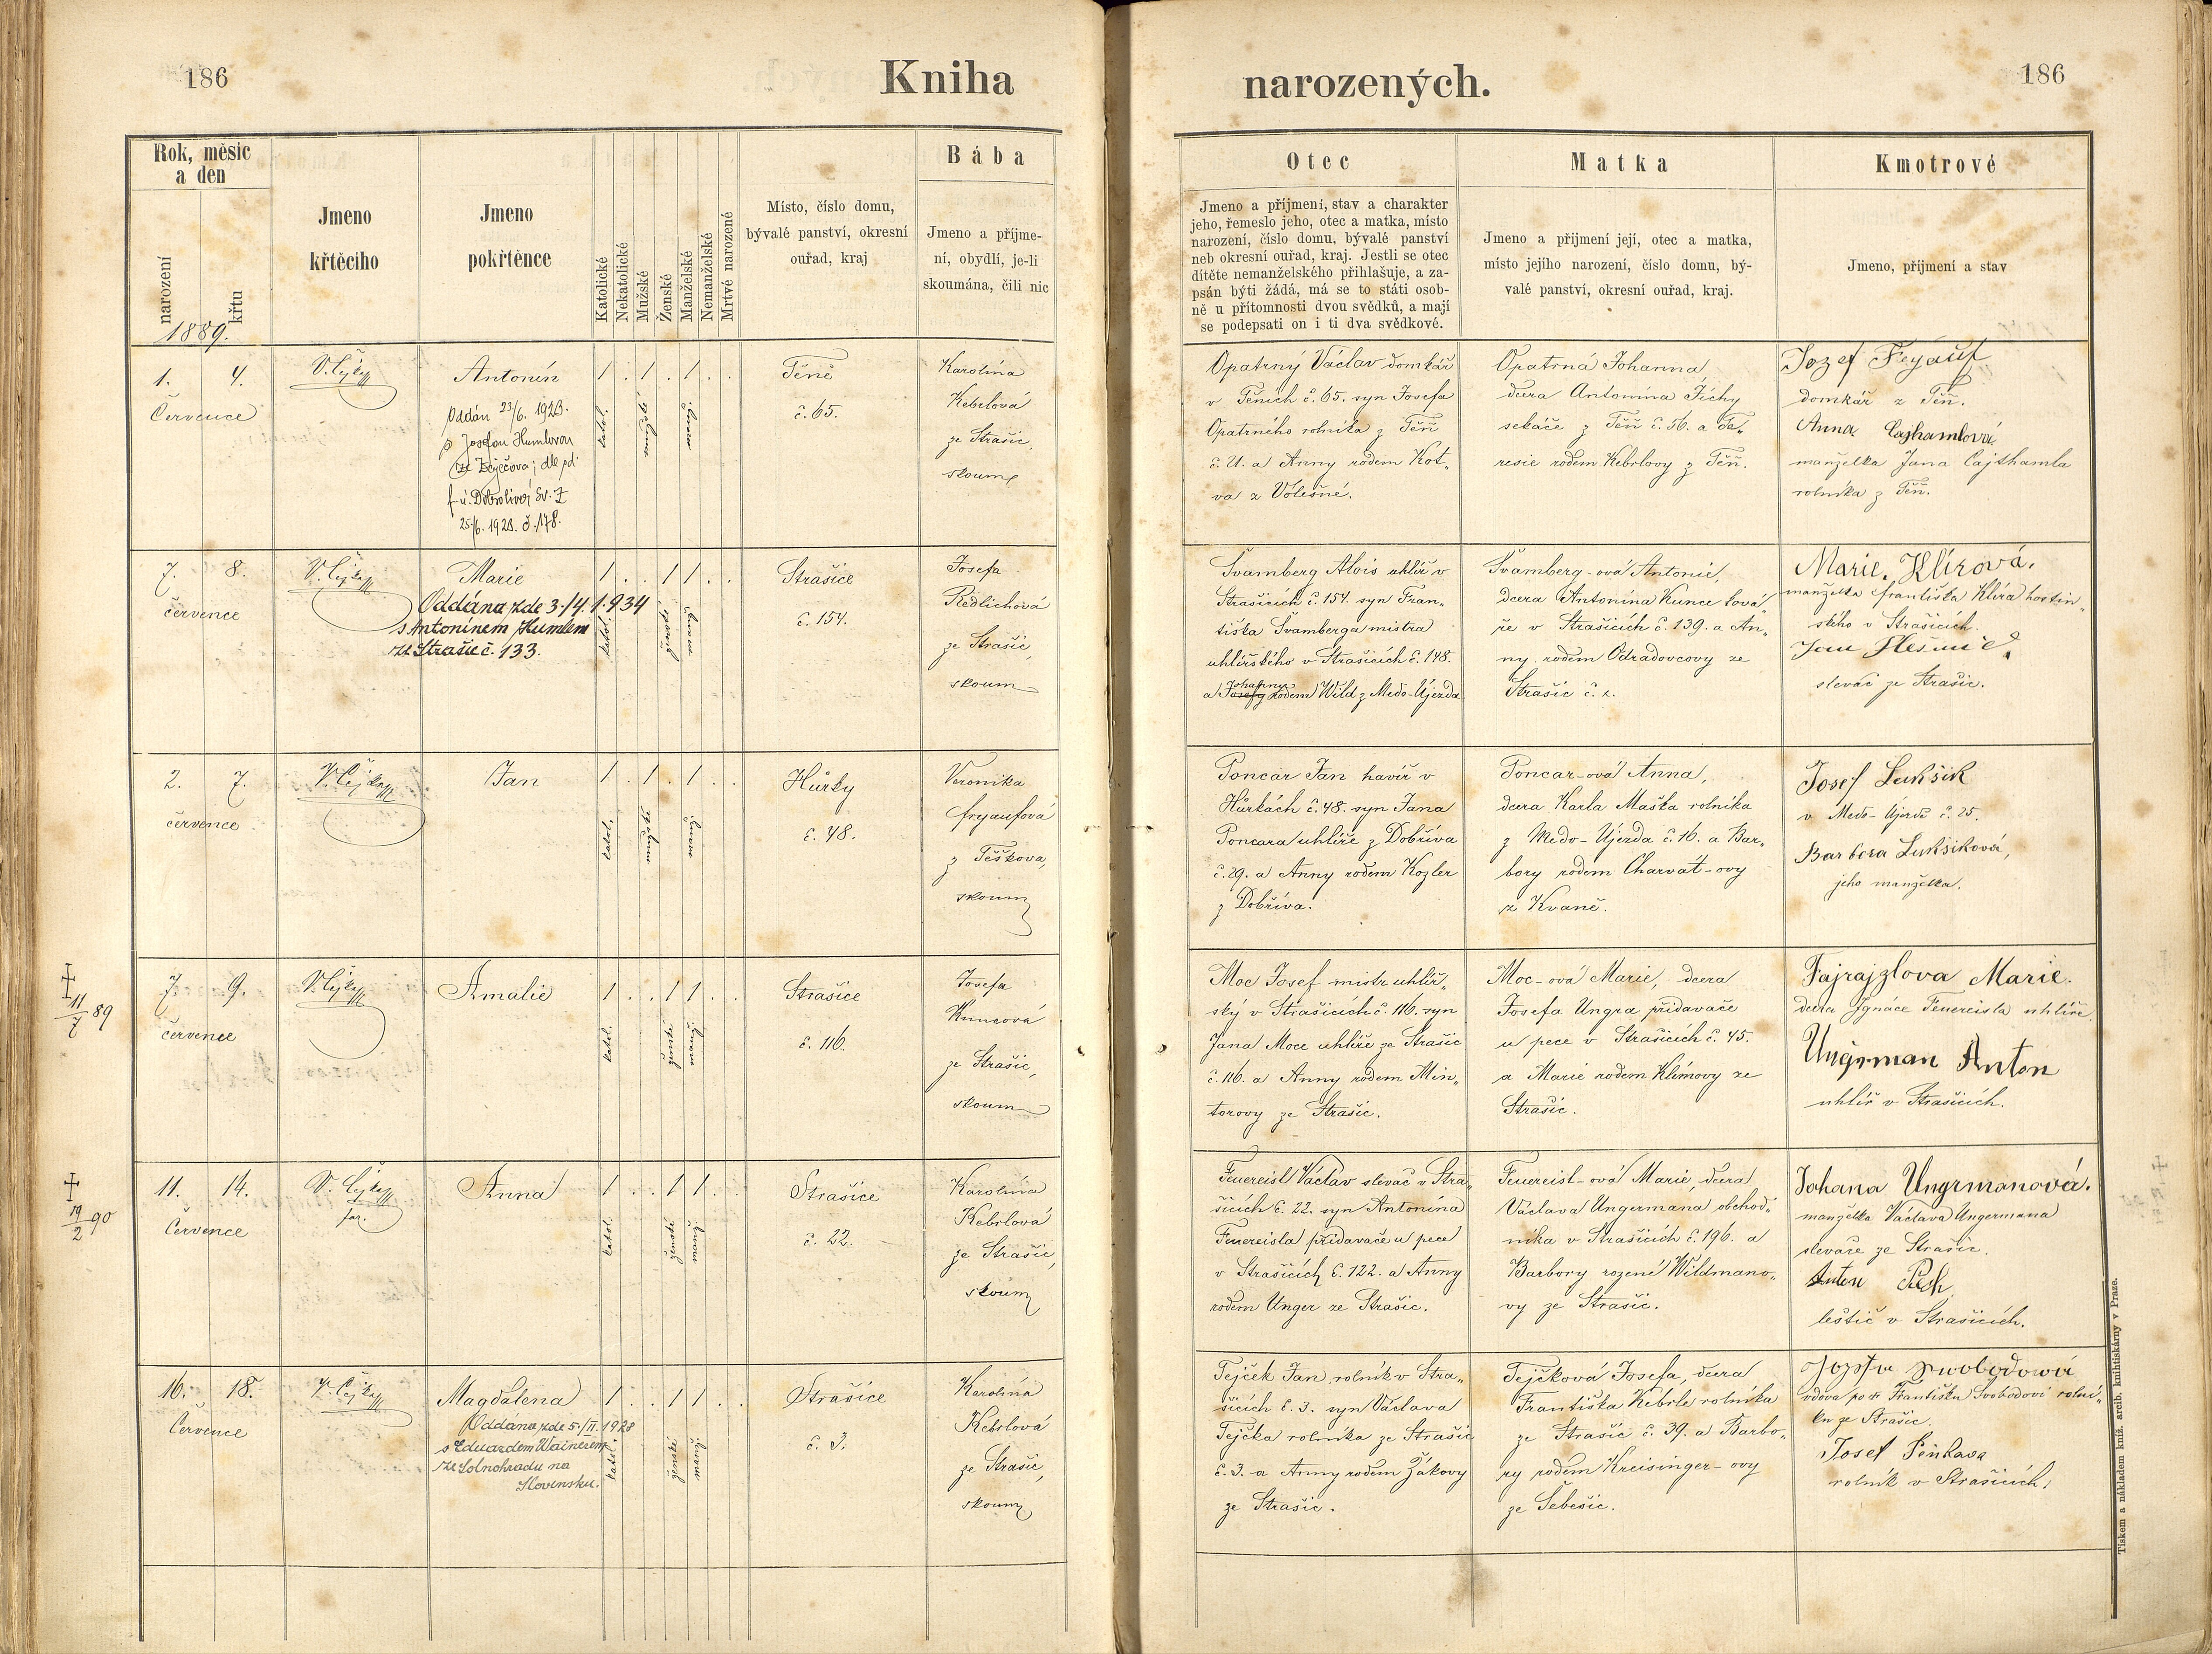 186
Kniha
narozených.
186
Rok, měsíc
a den
narození
křtu
1889.
Jmeno
křtěcího
Jmeno
pokřtěnce
Katolické
Nekatolické
Mužské
Ženské
Manželské
Nemanželské
Mrtvé narozené
Místo, číslo domu,
bývalé panství, okresní
ouřad, kraj
Bába
Jmeno a příjme-
ní, obydlí, je-li
skoumána, čili nic
Otec
Jmeno a příjmení, stav a charakter
jeho, řemeslo jeho, otec a matka, místo
narození, číslo domu, bývalé panství
neb okresní ouřad, kraj. Jestli se otec
dítěte nemanželského přihlašuje, a za-
psán býti žádá, má se to státi osob-
ně u přítomnosti dvou svědků, a mají
se podepsati on i ti dva svědkové.
Matka
Jmeno a přijmení její, otec a matka,
místo jejího narození, číslo domu, bý-
valé panství, okresní ouřad, kraj.
Kmotrové
Jmeno, příjmení a stav
1. 4.
Července
V. Čejka
Antonín
Oddán 23/6. 1923.
s Josefou Humlovou
ze Zaječova; dle pd.
f. ú. Dobrolivá Sv. I
25/6. 1923. č. 178.
1 . 1 . 1 . .
katol.
Těně
č. 65.
Karolína
Kebrlová
ze Strašic,
skoum
Opatrný Václav domkář
v Těních č. 65. syn Josefa
Opatrného rolníka z Těň
č. 21. a Anny rodem Kot-
va z Volešné.
Opatrná Johanna,
dcera Antonína Tichy
sekáče z Těň č. 56. a Te-
resie rodem Kebrlovy z Těň.
Jozef Fryauf
domkář z Těň.
Anna Cajthamlová
manželka Jana Cajthamla
rolníka z Těň.
7. 8.
července
V. Čejka
Marie
Oddána zde 3./4. 1934
s Antonínem Humlem
ze Strašic č. 133.
1 . . 1 1 . .
katol.
Strašice
č. 154.
Josefa
Redlichová
ze Strašic,
skoum
Švamberg Alois uhlíř v
Strašicích č. 154. syn Fran-
tiška Švamberga mistra
uhlířského v Strašicích č. 148.
Johanny
a Josefy rodem Wild z Medo-Újezda
Švamberg-ová Antonie,
dcera Antonína Kunce ková-
ře v Strašicích č. 139. a An-
ny rodem Odradovcovy ze
Strašic č. 2.
Marie. Klírová.
manželka františka Klíra hostin-
ského v Strašicích.
slevač ze Strašic.
2. 7.
července
V. Čejka
Jan
1 . 1 . 1 . .
katol.
Hůrky
č. 48.
Veronika
fryaufová
z Těškova,
skoum
Poncar Jan havíř v
Hůrkách č. 48. syn Jana
Poncara uhlíře z Dobříva
č. 29. a Anny rodem Kozler
z Dobříva.
Poncar-ová Anna,
dcera Karla Maška rolníka
z Medo-Újezda č. 16. a Bar-
bory rodem Charvát-ovy
z Kvaně.
Josef Lukšik
v Medo-Újezdě č. 25.
Barbora Lukšiková,
jeho manželka.
† 11/7 89
7. 9.
července
V. Čejka
Amalie
1 . . 1 1 . .
katol.
Strašice
č. 116.
Josefa
Kuncová
ze Strašic,
skoum
Moc Josef mistr uhlíř-
ský v Strašicích č. 116. syn
Jana Moce uhlíře ze Strašic
č. 116. a Anny rodem Min-
torovy ze Strašic.
Moc-ová Marie, dcera
Josefa Ungra přidavače
u pece v Strašicích č. 45.
a Marie rodem Klímovy ze
Strašic.
Fajrajzlova Marie.
dcera Ignáce Feuereisla uhlíře
Ungrman Anton
uhlíř v Strašicích.
† 19/2 90
11. 14.
Července
V. Čejka
far.
Anna
1 . . 1 1 . .
katol.
ženské
manž.
Strašice
č. 22.
Karolína
Kebrlová
ze Strašic,
skoum
Feuereisl Václav slevač v Stra-
šicích č. 22. syn Antonína
Feuereisla přidavače u pece
v Strašicích č. 122. a Anny
rodem Unger ze Strašic.
Feuereisl-ová Marie, dcera
Václava Ungermana obchod-
níka v Strašicích č. 196. a
Barbory rozené Wildmano-
vy ze Strašic.
Johana Ungrmanová.
manželka Václava Ungermana
slevače ze Strašic.
Anton Pech
leštič v Strašicích.
16. 18.
Července
V. Čejka
Magdalena
Oddána zde 5./II. 1928
s Eduardem Wainerem
ze Solnohradu na
Slovensku.
1 . . 1 1 . .
katol.
ženské
manž.
Strašice
č. 3.
Karolína
Kebrlová
ze Strašic,
skoum
Tejček Jan, rolník v Stra-
šicích č. 3. syn Václava
Tejčka rolníka ze Strašic
č. 3. a Anny rodem Žákovy
ze Strašic.
Tejčková Josefa, dcera
Františka Kebrle rolníka
ze Strašic č. 39. a Barbo-
ry rodem Kreisinger-ovy
ze Sebešic.
Jozefa Swobodowá
vdova po Františku Svobodovi rolní-
ku ze Strašic.
Josef Pěnkava
rolník v Strašicích.
Tiskem a nákladem kníž. arcib. knihtiskárny v Praze.